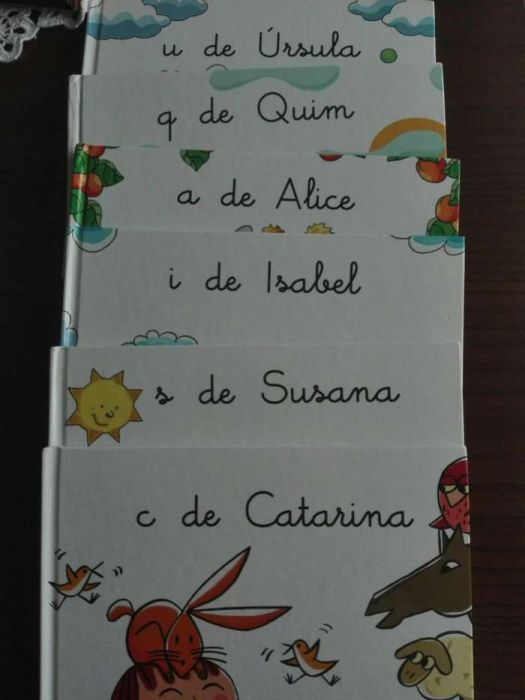 u de Úrsula
q de Quim
a de Alice
i de Isabel
s de Susana
c de Catarina